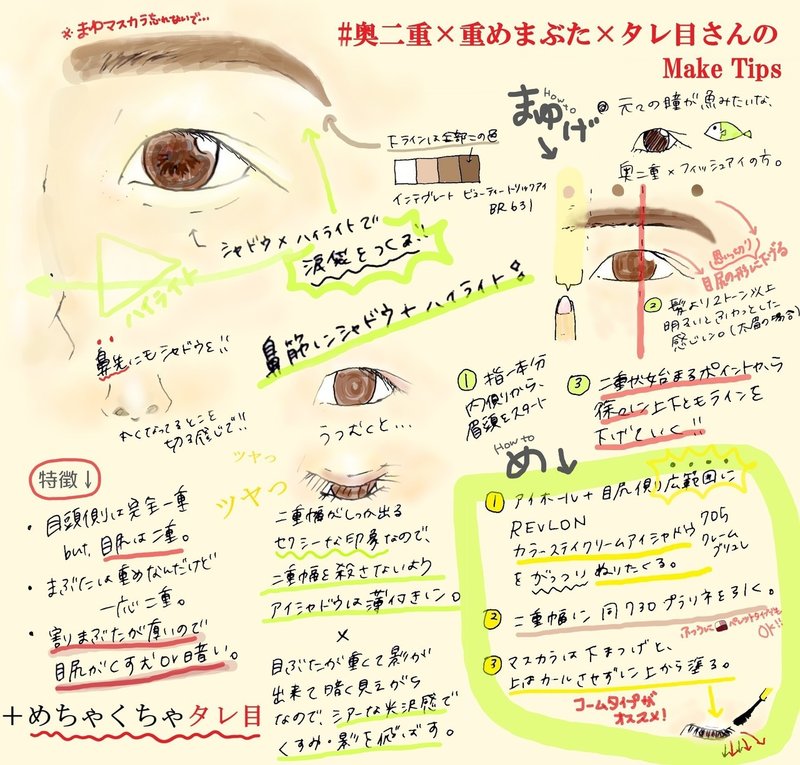 ※まゆマスカラ忘れないで…
#奥二重×重めまぶた×タレ目さんの
Make Tips
下ラインは全部この色
インテグレート ビューティートリックアイ
BR631
シャドウ×ハイライトで
涙袋をつくる!!
ハイライト
鼻先にもシャドウを!!
丸くなってるとこを
切る感じで!!
鼻筋にシャドウ+ハイライト!
うつむくと…
ツヤっ
ツヤっ
特徴↓
・目頭側は完全一重
but, 目尻は二重。
・まぶたは重めなんだけど
一応二重。
・割りまぶたが厚いので
目尻がくすむor暗い。
+めちゃくちゃタレ目
二重幅がしっか出る
セクシーな印象なので、
二重幅を殺さないより
アイシャドウは薄付きに。
×
目ぶたが重くて影が
出来て暗く見えがち
なので、シアーな光沢感で
くすみ・影を飛ばす。
How to
まゆげ
元ての瞳が魚みたいな、
奥二重×フィッシュアイの方。
思いっきり
目尻の形に下げる
② 髪より2トーン以上
明るいとふわっとした
感じに。(太眉の場合)
① 指一本分
内側りから、
眉頭をスタート
③ 二重が始まるポイントから
徐々に上下ともラインを
下げていく!!
How to
め↓
① アイホール+目尻側り広範囲に
REVLON
カラーステイクリームアイシャドウ 705
クレームブリュレ
をがっつりぬりたくる。
② 二重幅に同730プラリネを引く。
ふつうにパレットタイプでも
OK!!
③ マスカラは下まつげと、
上はカールさせずに上から塗る。
コームタイプが
オススメ!